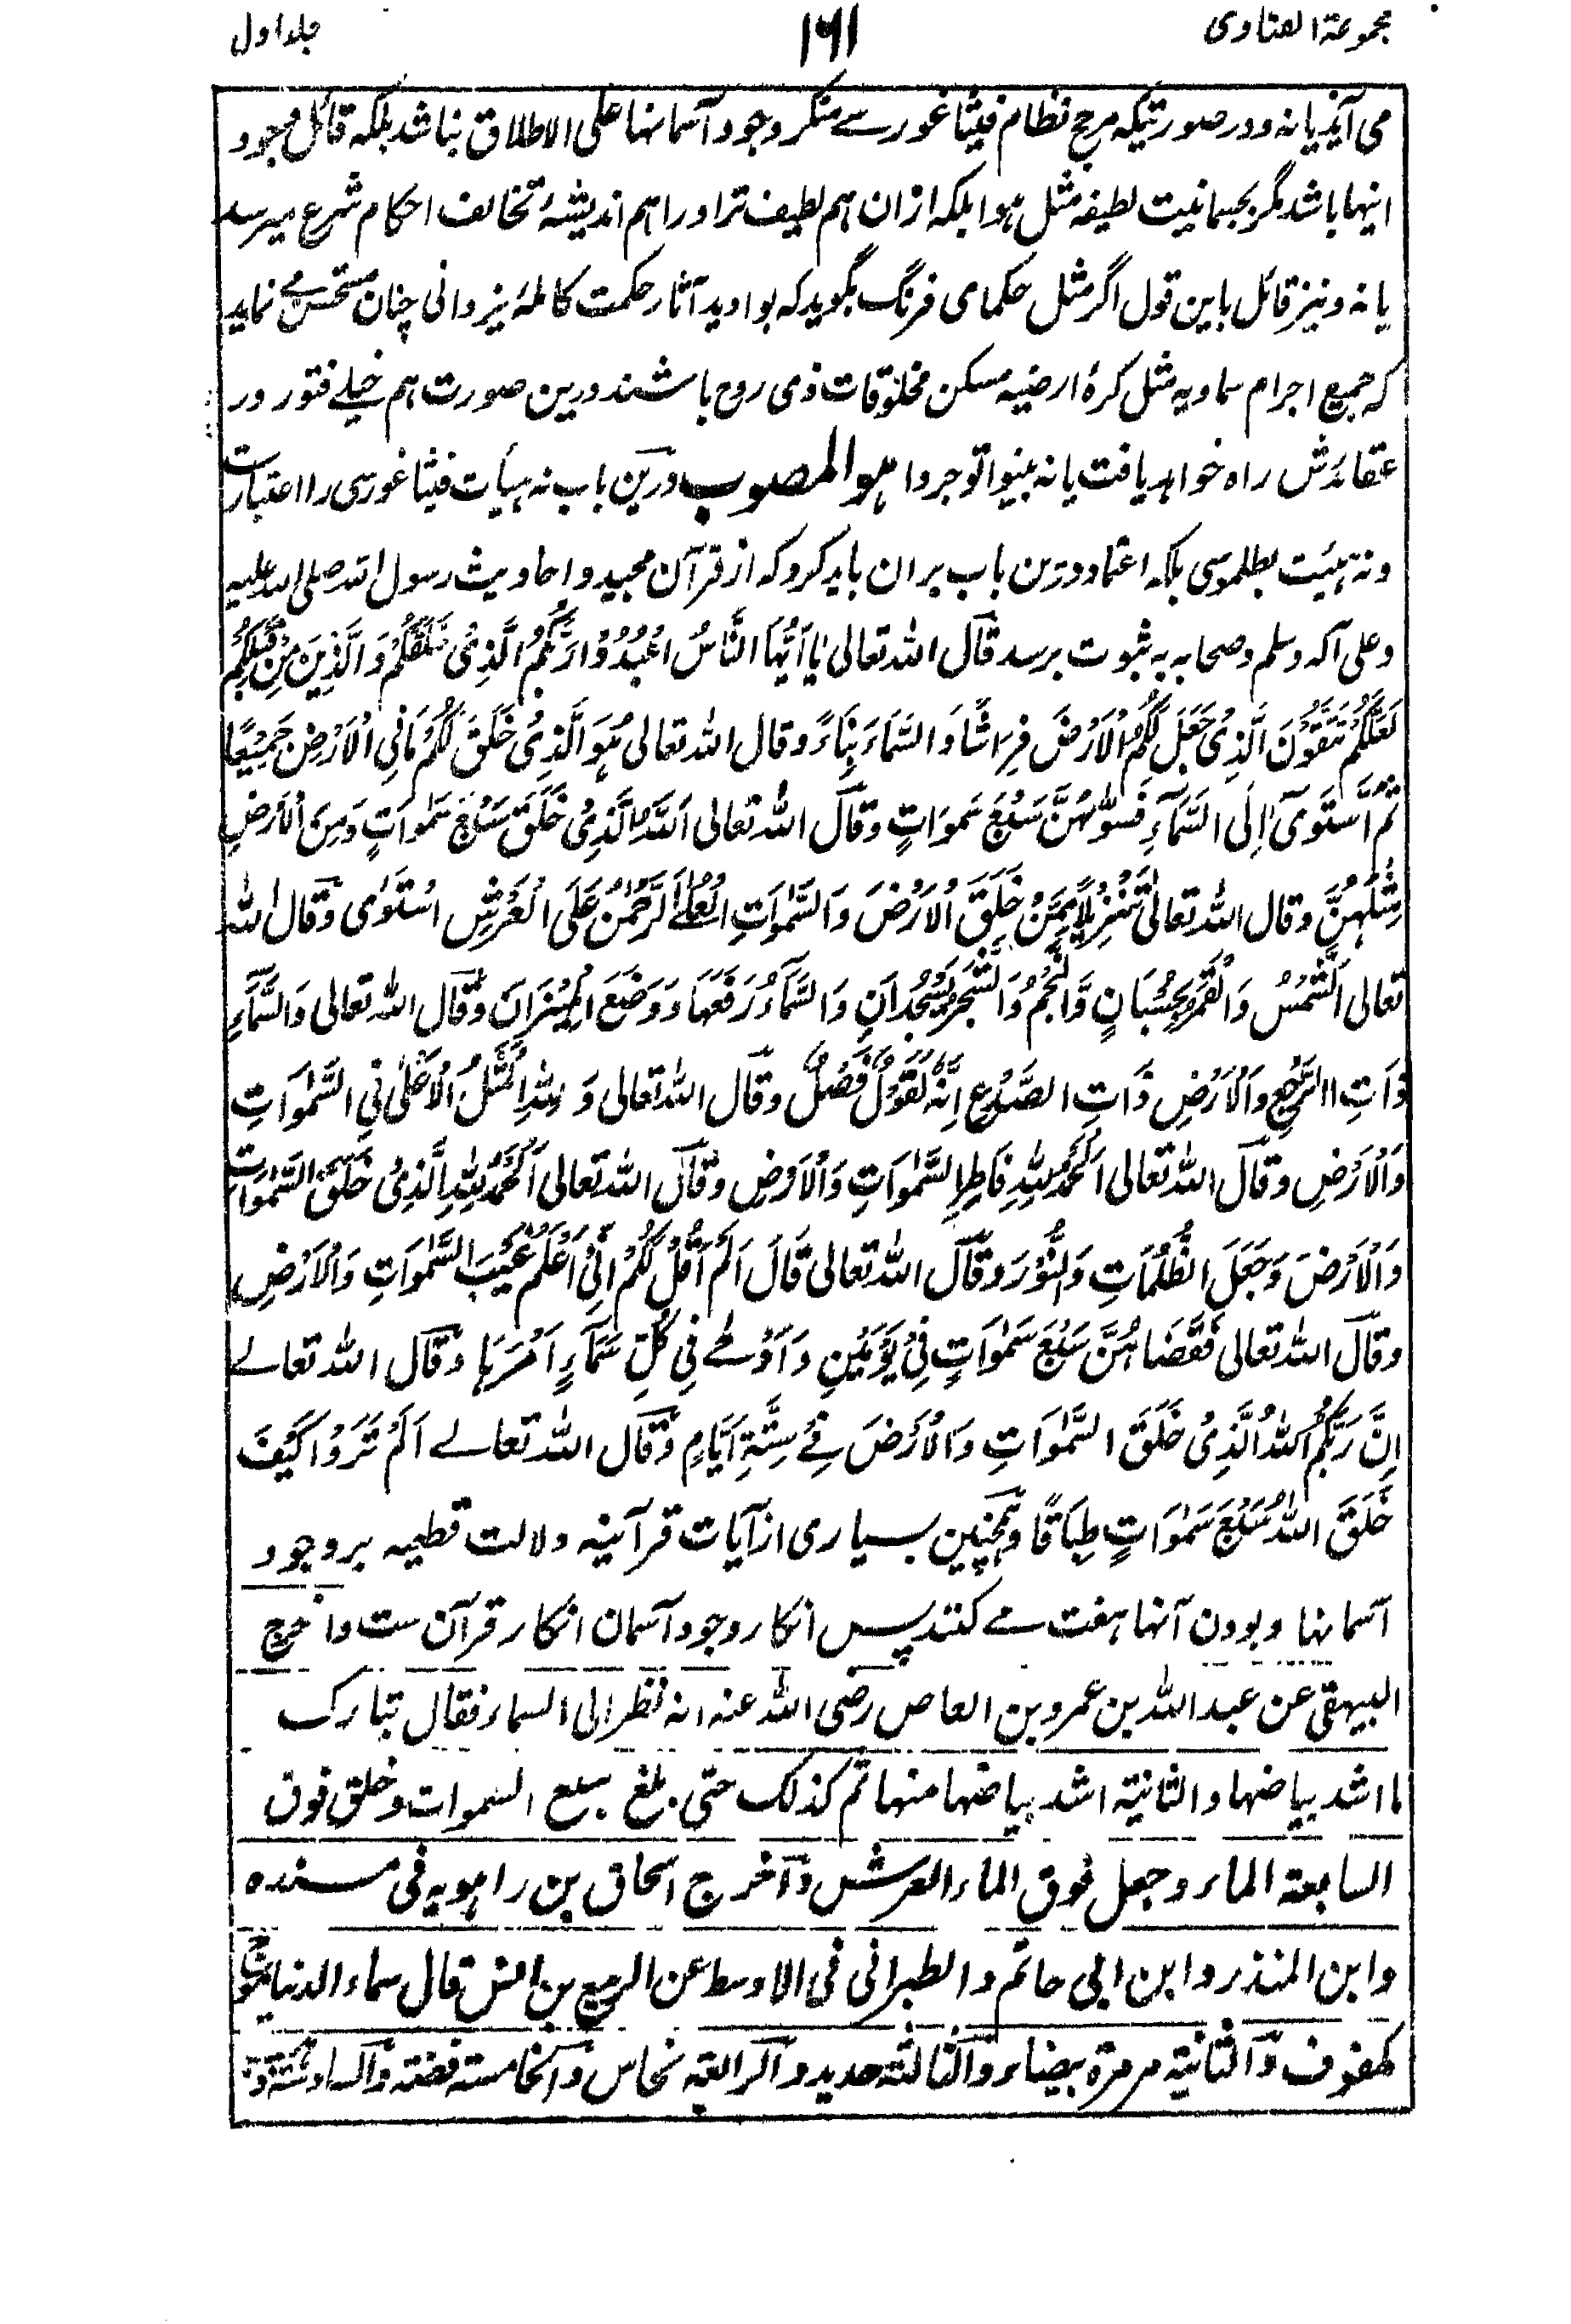 مجموعۃ الفتاوی ۱۶۱ جلد اول
می آید یا نہ و در صورتیکہ مرجح نظام فیثاغورسے منکر وجود آسمانہا علی الاطلاق نباشد بلکہ قائل بوجود
اینہا باشد مگر بجسمانیت لطیفہ مثل ہوا بلکہ ازان ہم لطیف تر اورا ہم اندیشۂ تخالف احکام شرع میرسد
یا نہ و نیز قائل باین قول اگر مثل حکمای فرنگ بگوید کہ بوادید آثار حکمت کاملۂ یزدانی چنان مستحسن مے نماید
کہ جمیع اجرام سماویہ مثل کرۂ ارضیہ مسکن مخلوقات ذی روح باشند درین صورت ہم خیلے فتور در
عقائدش راہ خواہد یافت یا نہ بینوا توجروا ہو المصوب درین باب نہ ہیأت فیثاغورسی را اعتبارست
و نہ ہیئت بطلموسی بلکہ اعتماد درین باب بران باید کرد کہ از قرآن مجید و احادیث رسول اللہ صلی اللہ علیہ
وعلی آلہ وسلم و صحابہ بہ ثبوت برسد قال اللہ تعالی یَا اَیُّہَا النَّاسُ اعْبُدُوْا رَبَّکُمُ الَّذِیْ خَلَقَکُمْ وَالَّذِیْنَ مِنْ قَبْلِکُمْ
لَعَلَّکُمْ تَتَّقُوْنَ الَّذِیْ جَعَلَ لَکُمُ الْاَرْضَ فِرَاشًا وَالسَّمَاءَ بِنَاءً وقال اللہ تعالی ہُوَ الَّذِیْ خَلَقَ لَکُمْ مَا فِی الْاَرْضِ جَمِیْعًا
ثُمَّ اسْتَوٰی اِلَی السَّمَآءِ فَسَوّٰہُنَّ سَبْعَ سَمَوَاتٍ وقال اللہ تعالی اَللّٰہُ الَّذِیْ خَلَقَ سَبْعَ سَمٰوَاتٍ وَمِنَ الْاَرْضِ
مِثْلَہُنَّ وقال اللہ تعالی تَنْزِیْلًا مِمَّنْ خَلَقَ الْاَرْضَ وَالسَّمٰوَاتِ الْعُلٰے اَلرَّحْمٰنُ عَلَی الْعَرْشِ اسْتَوٰی وقال اللہ
تعالی اَلشَّمْسُ وَالْقَمَرُ بِحُسْبَانٍ وَّالنَّجْمُ وَالشَّجَرُ یَسْجُدَانِ وَالسَّمَآءَ رَفَعَہَا وَوَضَعَ الْمِیْزَانَ وقال اللہ تعالی وَالسَّمَآءِ
ذَاتِ الرَّجْعِ وَالْاَرْضِ ذَاتِ الصَّدْعِ اِنَّہٗ لَقَوْلٌ فَصْلٌ وقال اللہ تعالی وَلِلّٰہِ الْمَثَلُ الْاَعْلٰی فِی السَّمٰوَاتِ
وَالْاَرْضِ وقال اللہ تعالی اَلْحَمْدُ لِلّٰہِ فَاطِرِ السَّمٰوَاتِ وَالْاَرْضِ وقال اللہ تعالی اَلْحَمْدُ لِلّٰہِ الَّذِیْ خَلَقَ السَّمٰوَاتِ
وَالْاَرْضَ وَجَعَلَ الظُّلُمَاتِ وَالنُّوْرَ وقال اللہ تعالی قَالَ اَلَمْ اَقُلْ لَکُمْ اِنِّیْ اَعْلَمُ غَیْبَ السَّمٰوَاتِ وَالْاَرْضِ
وقال اللہ تعالی فَقَضَاہُنَّ سَبْعَ سَمٰوَاتٍ فِیْ یَوْمَیْنِ وَاَوْحٰے فِیْ کُلِّ سَمَآءٍ اَمْرَہَا وقال اللہ تعالے
اِنَّ رَبَّکُمُ اللّٰہُ الَّذِیْ خَلَقَ السَّمٰوَاتِ وَالْاَرْضَ فِیْ سِتَّۃِ اَیَّامٍ وقال اللہ تعالے اَلَمْ تَرَوْا کَیْفَ
خَلَقَ اللّٰہُ سَبْعَ سَمٰوَاتٍ طِبَاقًا وہمچنین بسیاری از آیات قرآنیہ دلالت قطعیہ بر وجود
آسمانہا و بودن آنہا ہفت مے کنند پس انکار وجود آسمان انکار قرآن ست و اخرج
البیہقی عن عبد اللہ بن عمرو بن العاص رضی اللہ عنہ انہ نظر الی السماء فقال تبارک
ما اشد بیاضہا والثانیۃ اشد بیاضہا منہا ثم کذلک حتی بلغ سبع السموات وخلق فوق
السابعۃ الماء وجعل فوق الماء العرش واخرج اسحاق بن راہویہ فی مسندہ
وابن المنذر وابن ابی حاتم والطبرانی فی الاوسط عن الربیع بن انس قال سماء الدنیا موج
مکفوف والثانیۃ مرمرۃ بیضاء والثالثۃ حدید والرابعۃ نحاس والخامسۃ فضۃ والسادسۃ